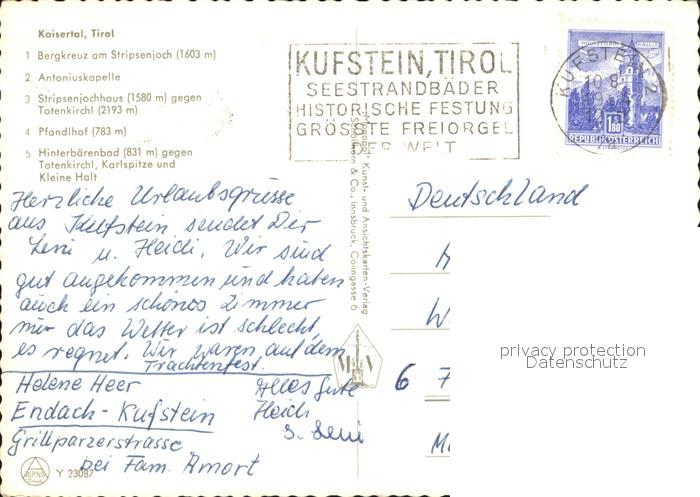 Kaisertal, Tirol
1 Bergkreuz am Stripsenjoch (1603 m)
2. Antoniuskapelle
3 Stripsenjochhaus (1580 m) gegen
Totenkirchl (2193 m)
4 Pfandlhof (783 m)
5 Hinterbärenbad (831 m) gegen
Totenkirchl, Karlspitze und
Kleine Halt
KUFSTEIN, TIROL
SEESTRANDBÄDER
HISTORISCHE FESTUNG
GRÖSSTE FREIORGEL
DER WELT
KUFSTEIN 2
10 8
1.80
REPUBLIK ÖSTERREICH
Herzliche Urlaubsgrüsse
aus Kufstein sendet Dir
Leni u. Heidi. Wir sind
gut angekommen und haben
auch ein schönes Zimmer
nur das Wetter ist schlecht,
es regnet. Wir waren auf dem
Trachtenfest.
Helene Heer
Endach-Kufstein
Grillparzerstrasse
bei Fam. Amort
Alles Gute
Heidi
u. Leni
Kunst- und Ansichtskarten-Verlag
& Co., Innsbruck, Colingasse 6
M V
Deutschland
6 7
privacy protection
Datenschutz
ALPINA
Y 23087